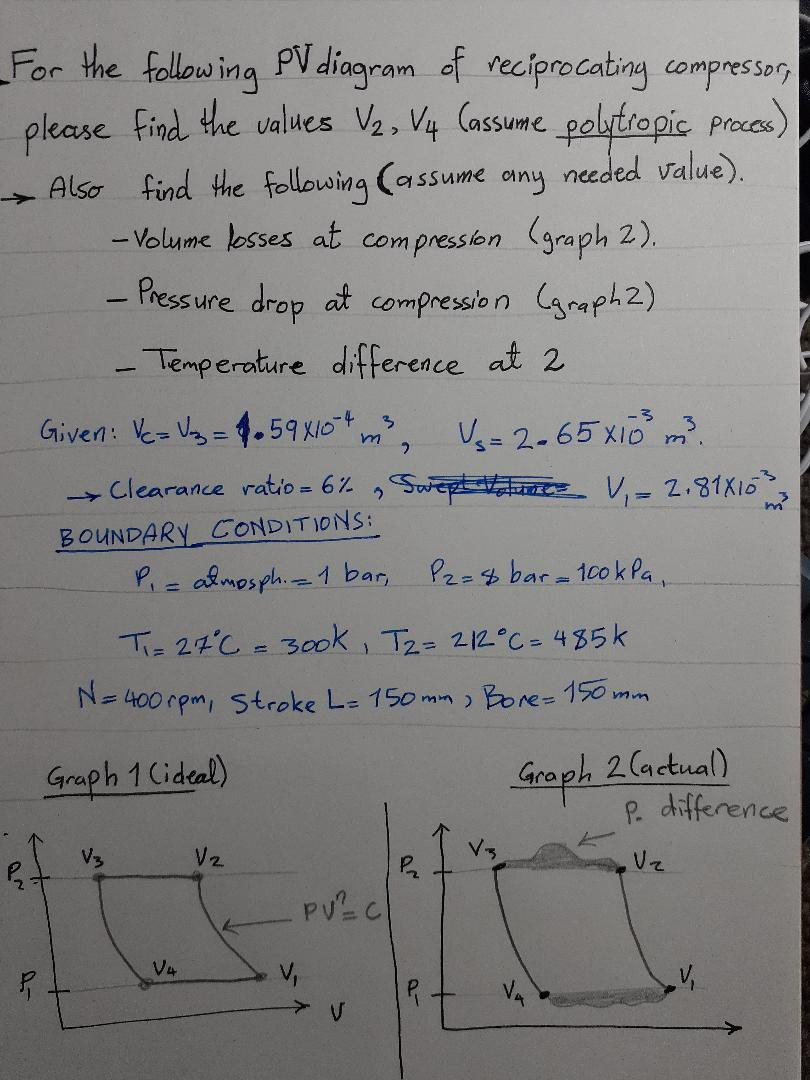 For the following PV diagram of reciprocating compressor,
please find the values V₂, V₄ (assume polytropic process)
→ Also find the following (assume any needed value).
- Volume losses at compression (graph 2).
- Pressure drop at compression (graph 2)
- Temperature difference at 2
Given: Vc = V₃ = 1.59 X10⁻⁴ m³, Vs = 2.65 X10⁻³ m³.
→ Clearance ratio = 6% , Swept Volume = V₁ = 2.81X10⁻³ m³
BOUNDARY CONDITIONS:
P₁ = atmosph. = 1 bar, P₂ = 8 bar = 100 kPa,
T₁ = 27°C = 300k , T₂ = 212°C = 485 k
N = 400 rpm, Stroke L = 150 mm , Bore = 150 mm
Graph 1 (ideal) Graph 2 (actual)
P. difference
P₂ V₃ V₂ P₂ V₃ V₂
PV^? = C
P₁ V₄ V₁ P₁ V₄ V₁
V